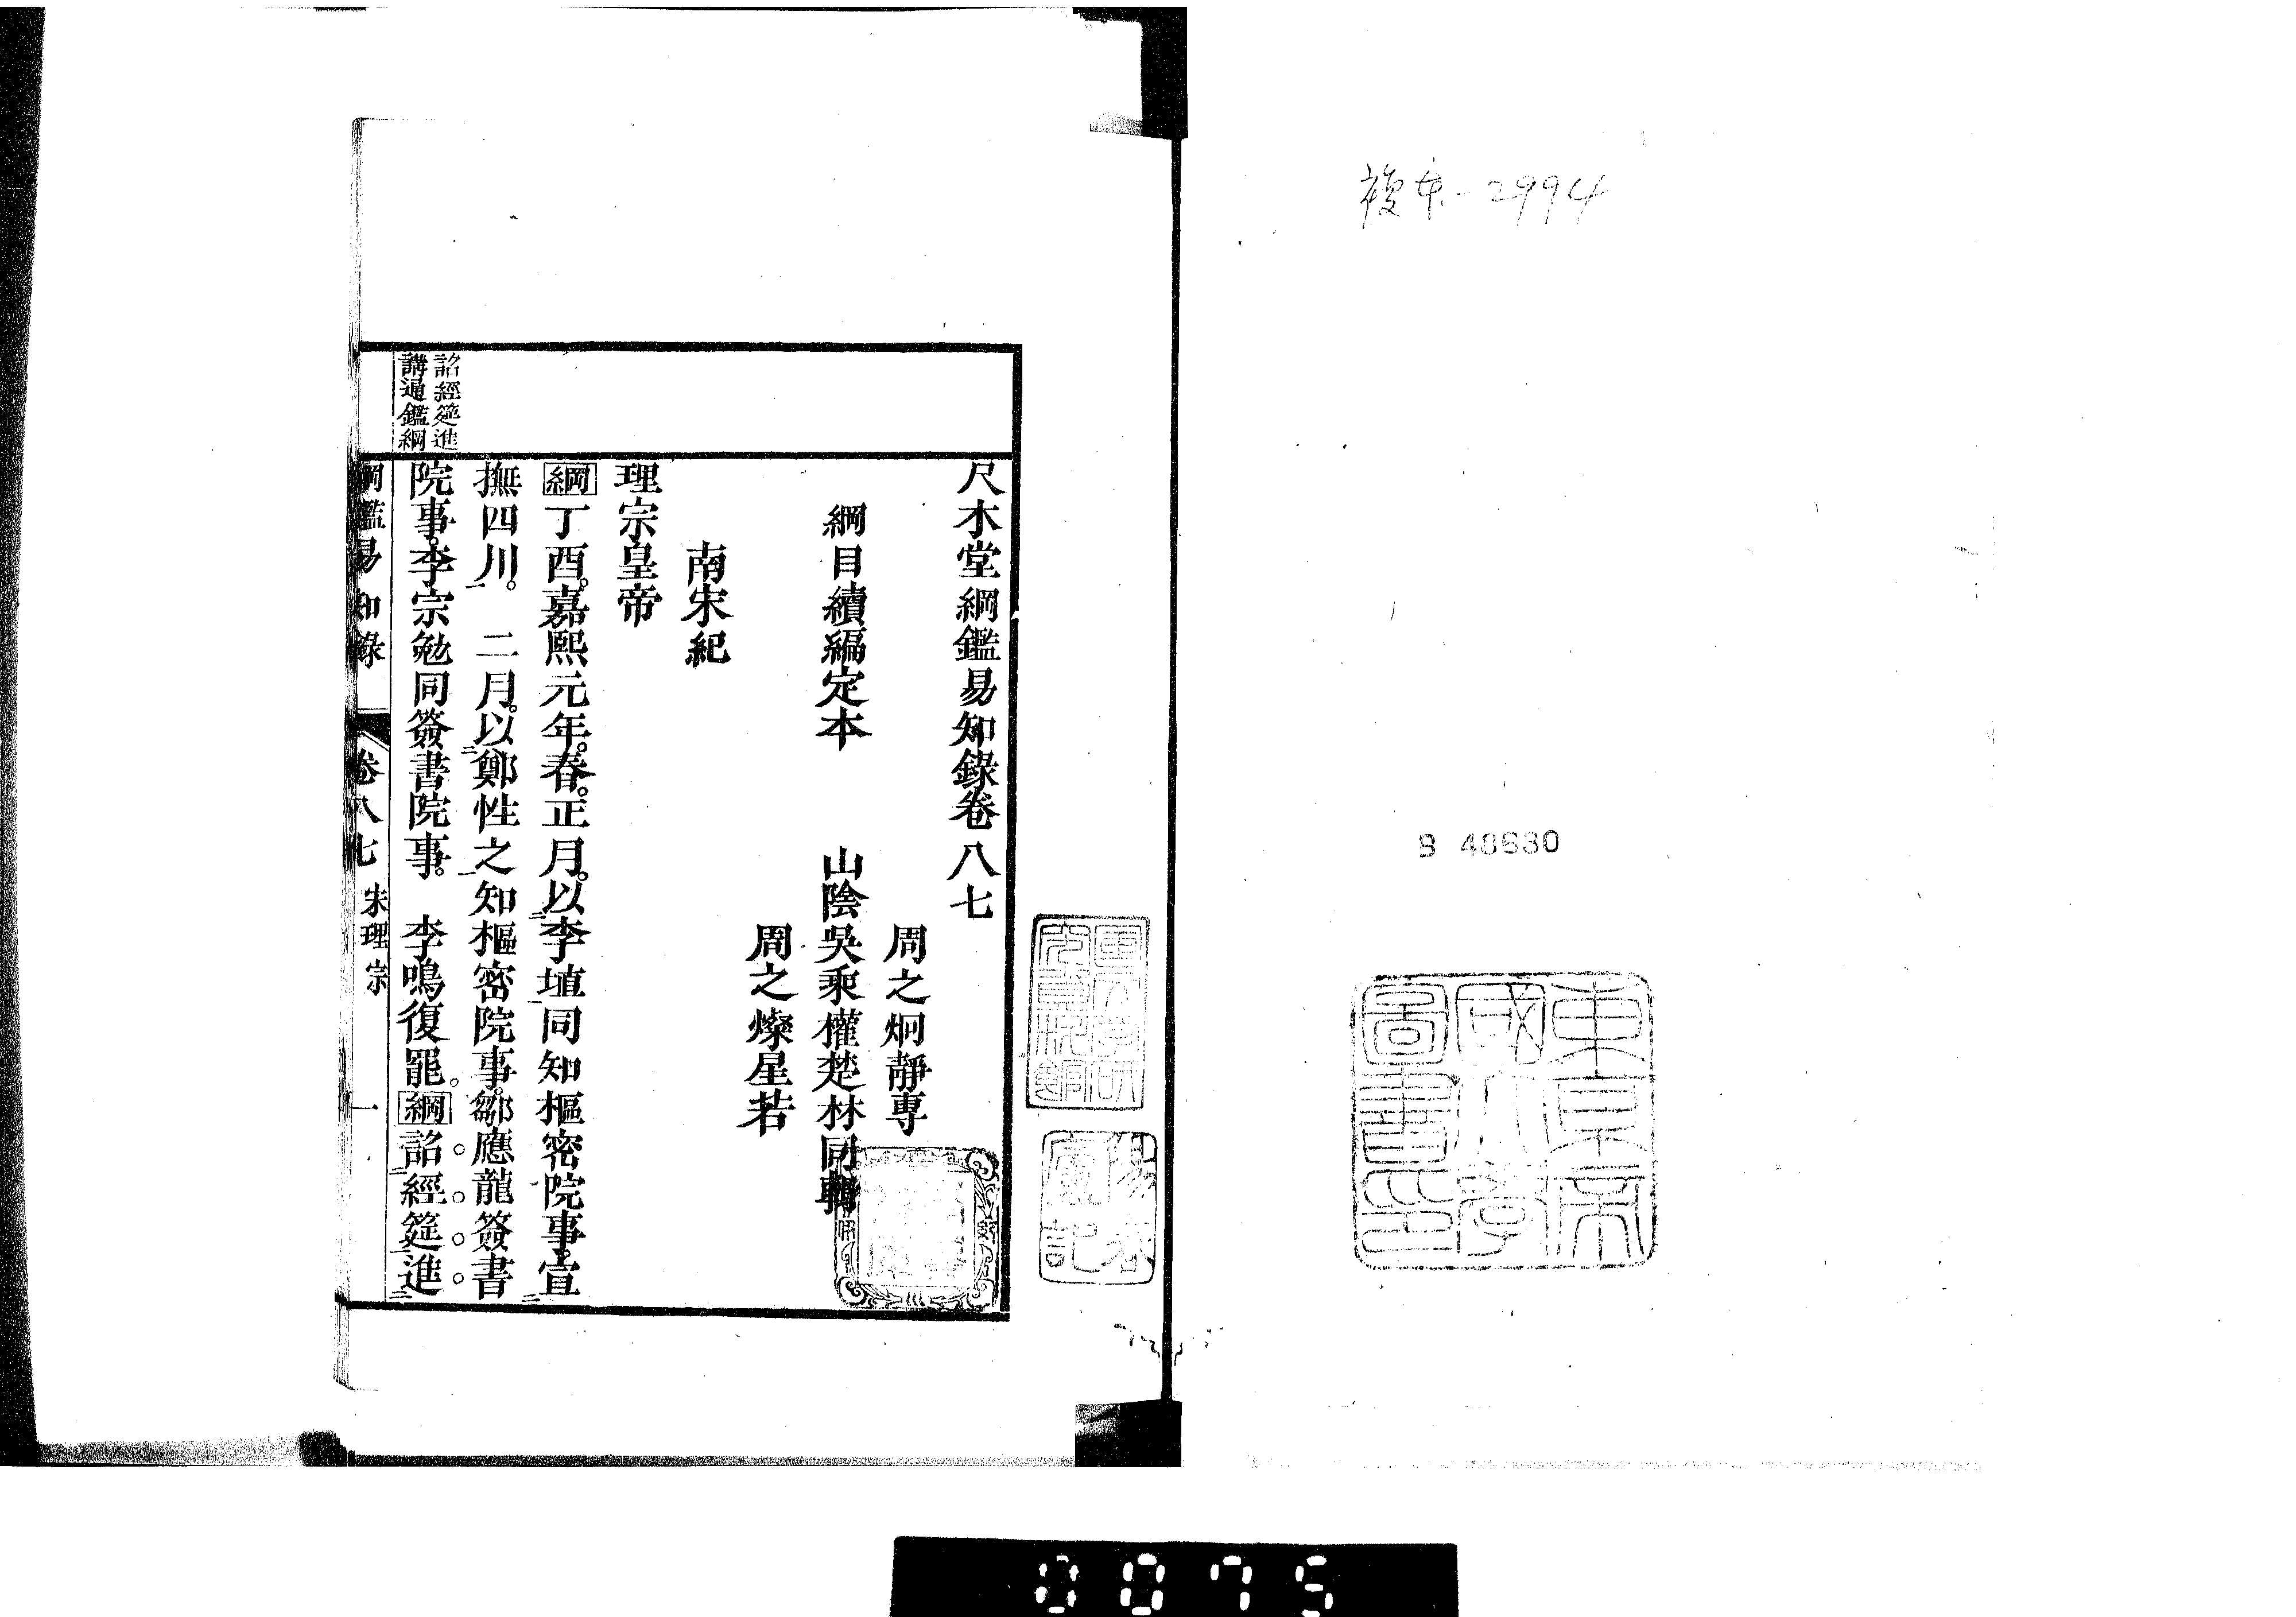 複本-2994
S 48630
東京帝
國大學
圖書印
陽春
廬記
尺木堂綱鑑易知錄卷八七
周之炯靜專
綱目續編定本 山陰吳乘權楚材同輯
周之燦星若
南宋紀
理宗皇帝
綱丁酉。嘉熙元年。春。正月。以李埴同知樞密院事。宣
撫四川。 二月。以鄭性之知樞密院事。鄒應龍簽書
院事。李宗勉同簽書院事。 李鳴復罷。綱詔經筵進
詔經筵進
講通鑑綱
綱鑑易知錄 卷八七 宋理宗 一
0075